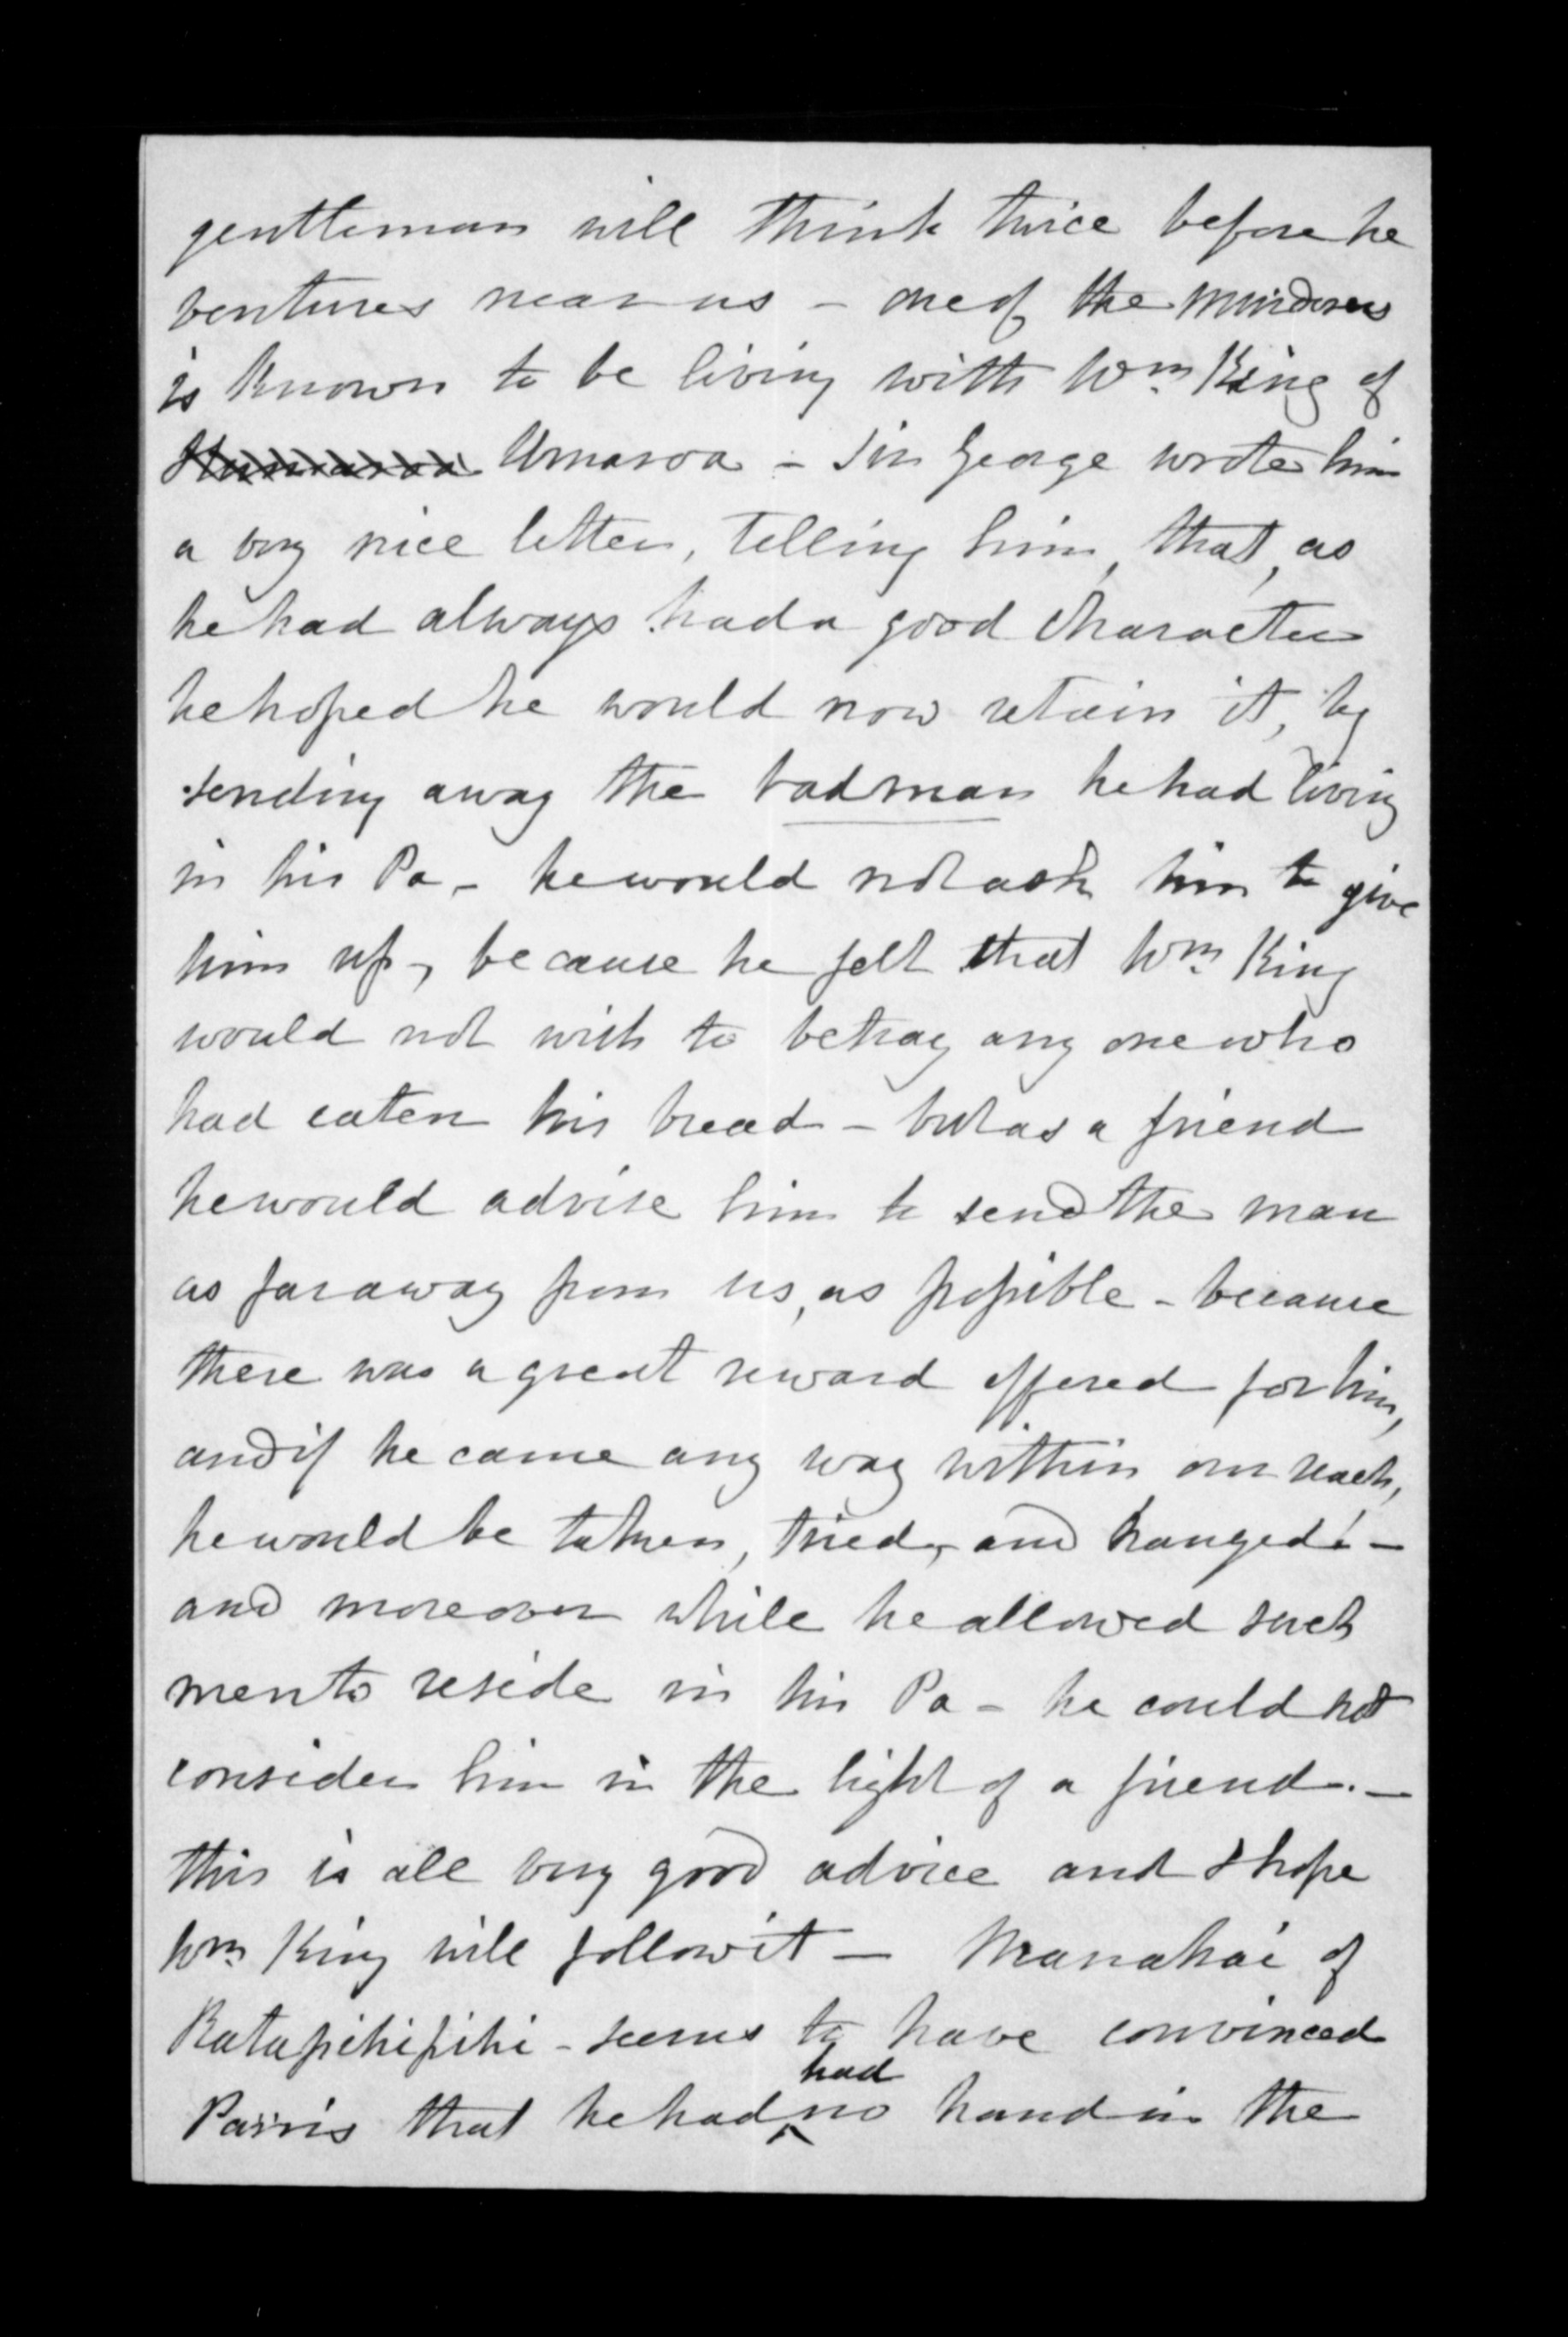 gentleman will think twice before he
ventures near us - one of the murderers
is known to be living with Wm. King of
Umaroa - Sir George wrote him
a very nice letter, telling him, that, as
he had always had a good character
he hoped he would now retain it, by
sending away the bad man he had living
in his Pa - he would not ask him to give
him up, because he felt that Wm. King
would not wish to betray any one who
had eaten his bread - but as a friend
he would advise him to send the man
as far away from us, as possible - because
there was a great reward offered for him,
and if he came any way within our reach,
he would be taken, tried, and hanged! -
and moreover while he allowed such
men to reside in his Pa - he could not
consider him in the light of a friend. -
this is all very good advice and I hope
Wm. King will follow it - Manahai of
Ratapihipihi - seems to have convinced
had
Parris that he had ^ no hand in the